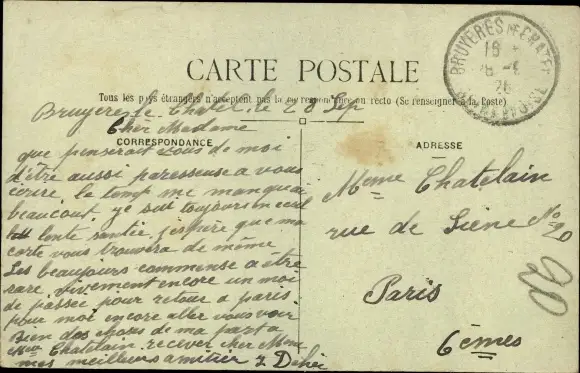 CARTE POSTALE
Tous les pays étrangers n'acceptent pas la correspondance au recto (Se renseigner à la Poste)
BRUYERES LE CHATEL
Bruyere le Chatel le 28 Sep
Cher Madame
CORRESPONDANCE
que penserait vous de moi
d'être aussi paresseuse a vous
écrire, le temp me manque
beaucoup, je suit toujours en
lente santée, j'espère que ma
carte vous trouvera de même
Les beaujours commense a être
rare, vivement encore un moi
de passée pour retour a paris
pour moi encore aller vous voir
Bien des de ma part a
Chatelain recever cher Mme
mes meilleurs amitier
ADRESSE
Mme Chatelain
rue de Seine No 20
Paris
6èmes
20